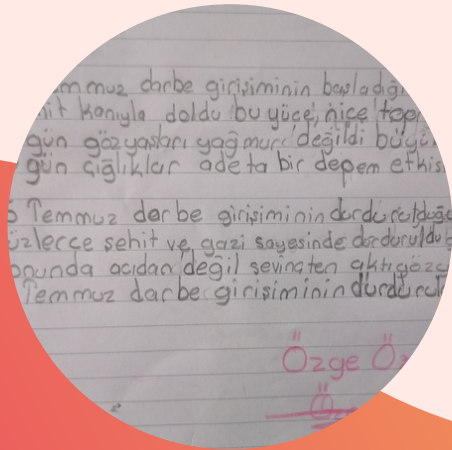 mmuz darbe girişiminin başladığı
hit kanıyla doldu bu yüce, nice top
gün göz yaşları yağmur değildi büyü
gün çığlıklar adeta bir deprem etkis
Temmuz darbe girişiminin durdurulduğu
üzlerce şehit ve gazi sayesinde durduruldu
onunda acıdan değil sevinçten aktı göz
Temmuz darbe girişiminin durdurul
Özge Öz
Ö